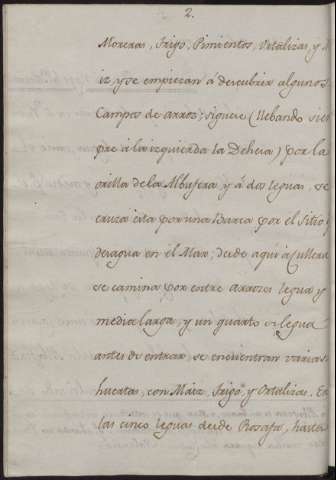 2.
Moreras, Trigo, Pimientos, Ortalizas y M
iz, y se empiezan á descubrir algunos
Campos de arroz; siguese (llebando siem
pre á la izquierda la Dehesa) por la
orilla de la Albufera y á dos leguas, se
cruza esta por una Barca por el Sitio q
desagua en el Mar; desde aqui á Cullera
se camina por entre arrozes legua y
media larga, y un quarto de legua
antes de entrar, se encuentran varias
huertas, con Maiz, Trigo, y Ortalizas. En
las cinco leguas desde Rosafa, hasta